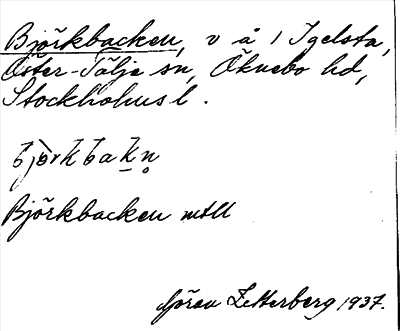 Björkbacken, v å 1 Igelsta,
Öster-Tälje sn, Öknebo hd,
Stockholms l.
björkbakn̥
Björkbacken mtll
Göran Zetterberg 1937.